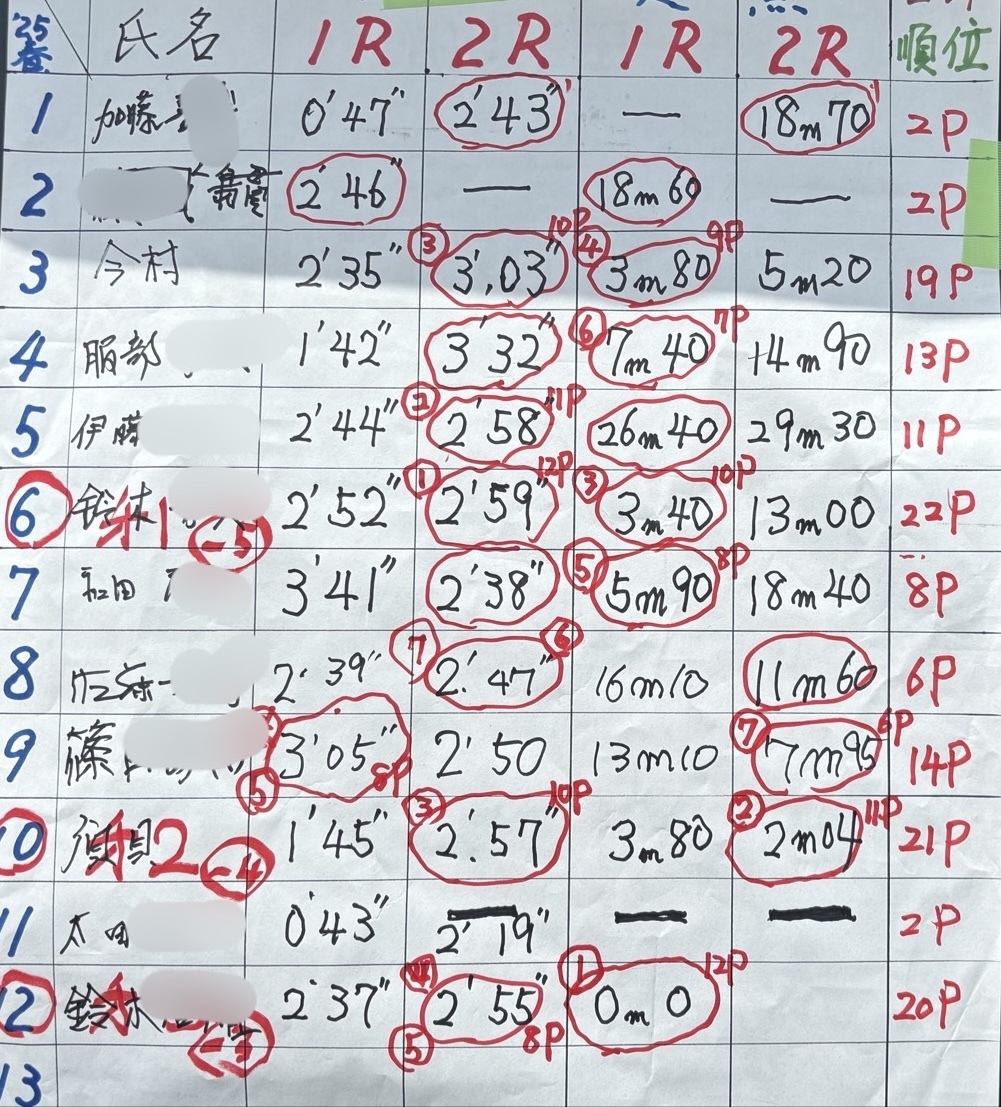 '25春 氏名 1R 2R 1R 2R 順位
1 加藤 0'47" 2'43" — 18m70 2P
2 2'46" — 18m60 — 2P
3 今村 2'35" ③ 3'03" 10P ④ 3m80 9P 5m20 19P
4 服部 1'42" 3'32" ⑥ 7m40 7P 14m90 13P
5 伊藤 2'44" ② 2'58" 11P 26m40 29m30 11P
6 鈴木 1 -5 2'52" ① 2'59" 12P ③ 3m40 10P 13m00 22P
7 和田 3'41" 2'38" ⑤ 5m90 8P 18m40 8P
8 2'39" ⑦ 2'47" ⑥ 16m10 11m60 6P
9 篠 3'05" ⑤ 8P 2'50 13m10 ⑦ 7m95 6P 14P
10 須貝 2 -4 1'45" ③ 2'57" 10P 3m80 ② 2m04 11P 21P
11 太田 0'43" — 2'19" — — 2P
12 鈴木 -3 2'37" ④ 2'55" ⑤ 8P ① 0m0 12P 20P
13